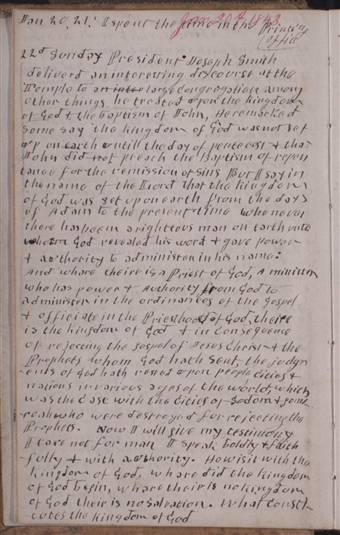 Jan 20, 21, I spent the time in the Printing
Jan 20th 1843
Office
22d Sunday President Joseph Smith
deliverd an interesting discourse at the
Temple to a large congregation among
other things he treated upon the kingdom
of God & the baptism of John, He remarked
some say the kingdom of God was not set
up on earth untill the day of pentecost & that
John did not preach the Baptism of repen
tance for the remission of sins But I say in
the name of the Lord that the kingdom
of God was set upon earth from the days
of Adam to the present time whenever
there has been a righteous man on earth unto
whom God revealed his word & gave power
& authority to administer in his name:
And where their is a Priest of God, A minister
who has power & Authority from God to
administer in the ordinances of the Gospel
& officiate in the Priesthood of God, theire
is the kingdom of God & in consequence
of rejecting the gospel of Jesus Christ & the
Prophets whom God hath sent, the judgm
ents of God hath rested upon people cities &
nations in various ages of the world, which
was the case with the cities of Sodom & gomo
roah who were destroyed for rejecting the
Prophets. Now I will give my testimony
I care not for man I speak boldly & faith
fully & with authority. How is it with the
kingdom of God, whare did the kingdom
of God begin, whare their is no kingdom
of God their is no salvation. What consti
tutes the kingdom of God